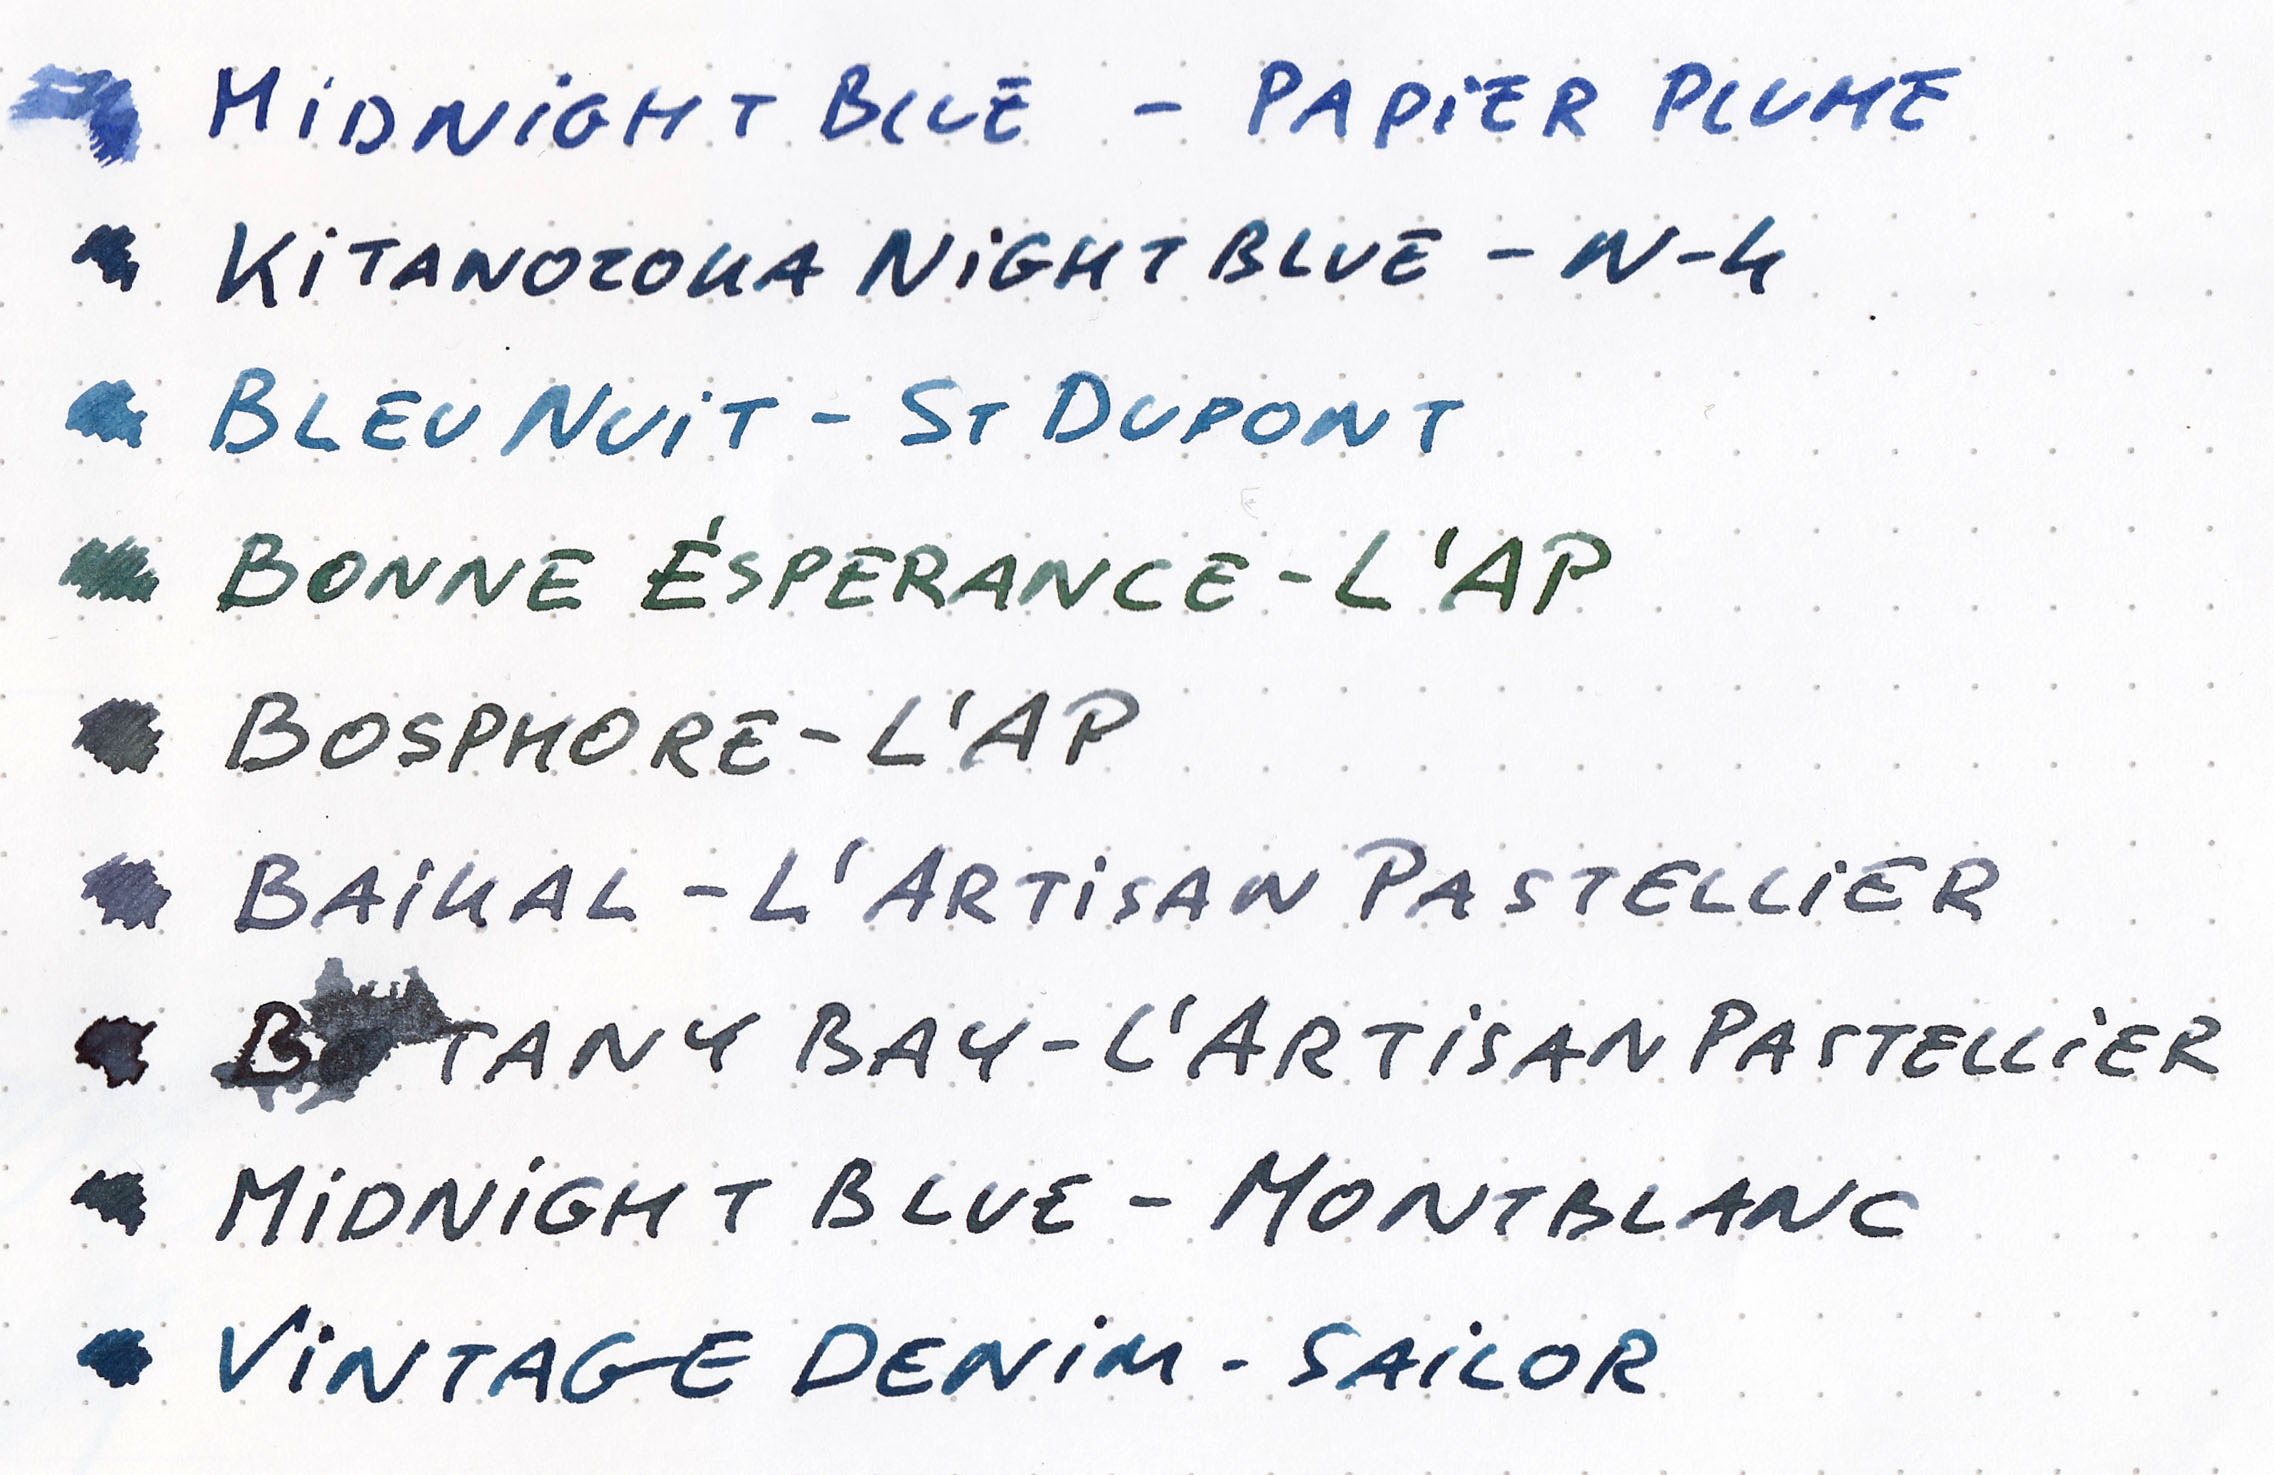 MiDNiGHT BLUE - PAPiER PLUME
KiTANOZOKA NiGHT BLUE - N-4
BLEU NUiT - ST DUPONT
BONNE ÉSPERANCE - L'AP
BOSPHORE - L'AP
BAiKAL - L'ARTiSAN PASTELLiER
BOTANY BAY - L'ARTiSAN PASTELLiER
MiDNiGHT BLUE - MONTBLANC
ViNTAGE DENiM - SAiLOR